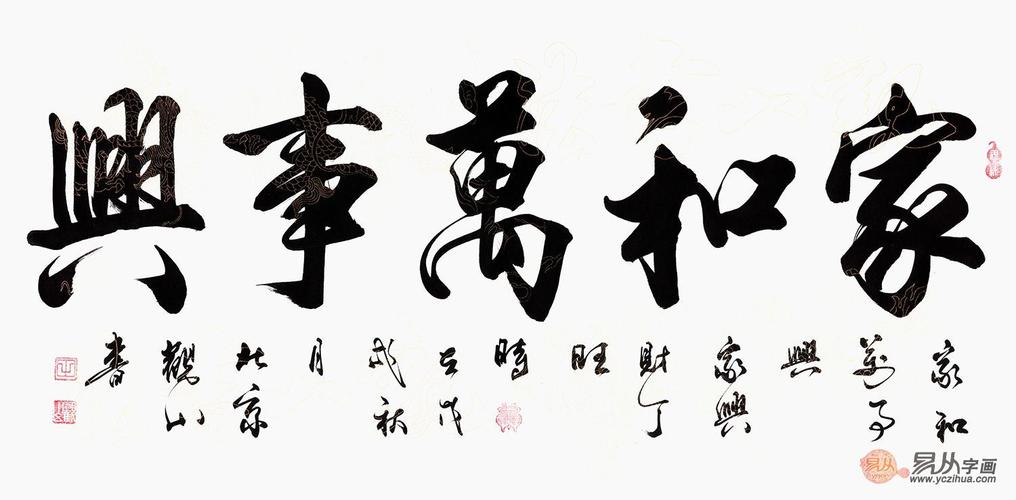 家和萬事興
家和
萬事
興
家興
財丁
旺
時
在戊
戌秋
月
北京
觀山
書
易从
易从字画
www.yczihua.com